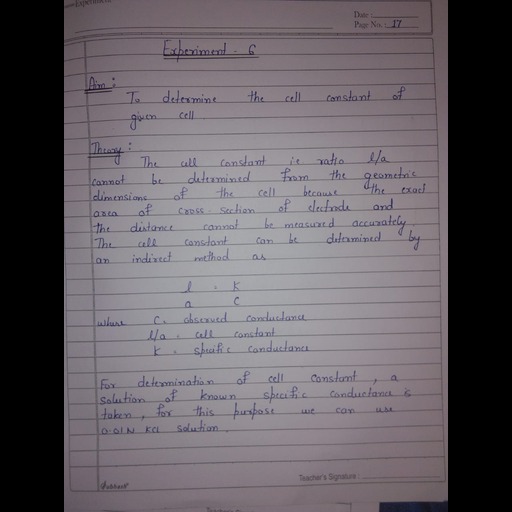 Experiment
Date :
Page No. : 17
Experiment - 6
Aim :
To determine the cell constant of
given cell.
Theory :
The cell constant ie ratio l/a
cannot be determined from the geometric
dimensions of the cell because the exact
area of cross-section of electrode and
the distance cannot be measured accurately.
The cell constant can be determined by
an indirect method as
l = K
a C
where C = observed conductance
l/a = cell constant
K = specific conductance
For determination of cell constant, a
solution of known specific conductance is
taken, for this purpose we can use
0.01N KCl solution.
Teacher's Signature :